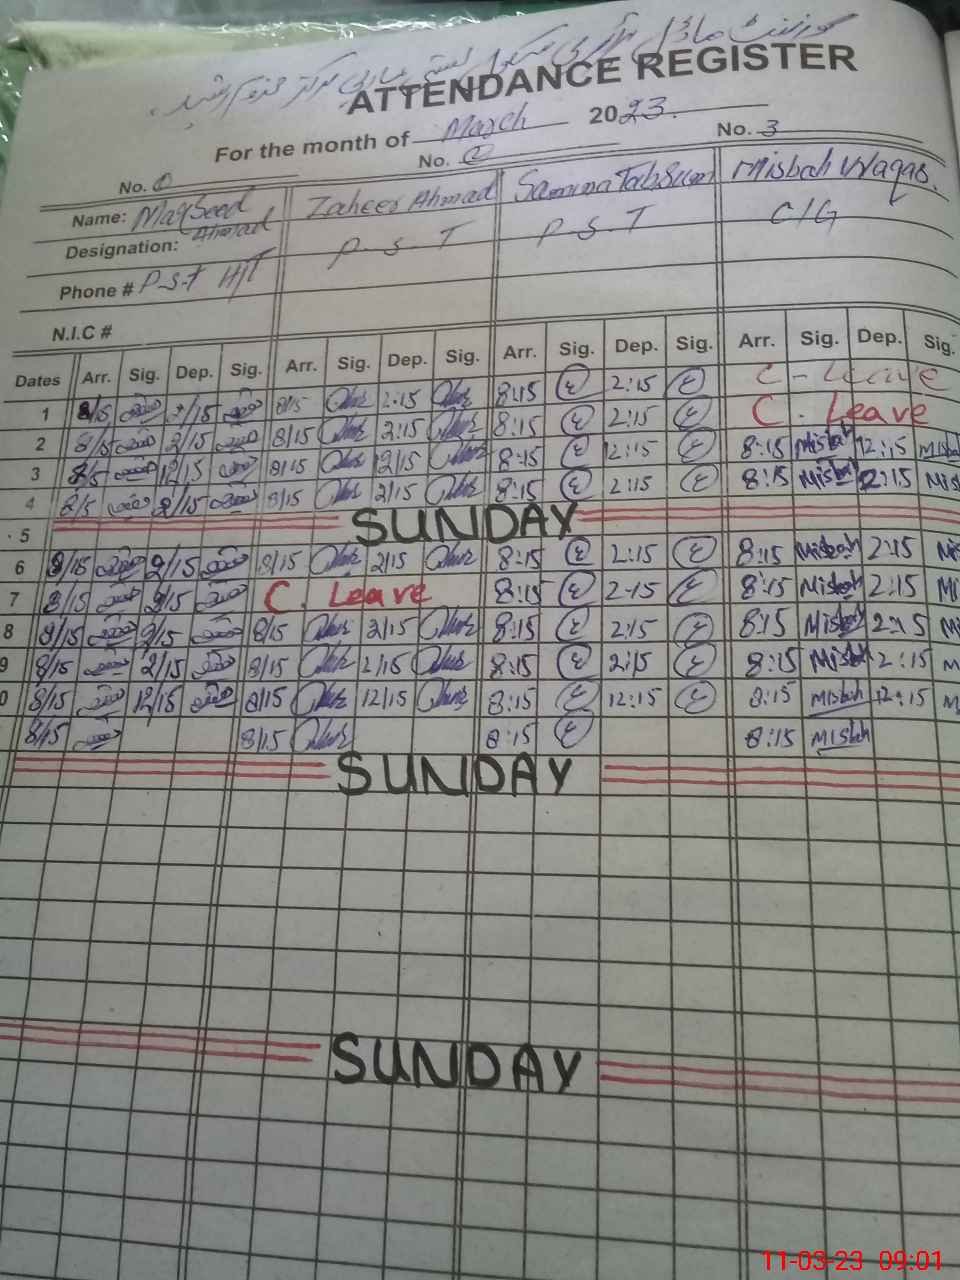 گورنمنٹ ماڈل پرائمری سکول بستی مرکز
ATTENDANCE REGISTER
For the month of March 2023.
No. 1 No. 2 No. 3
Name: MaqSood Ahmad Zaheer Ahmad Samina TabSum Misbah Waqas.
Designation: P-S-T P-S-T C/G
Phone # P-S-T H/T
N.I.C #
Dates Arr. Sig. Dep. Sig. Arr. Sig. Dep. Sig. Arr. Sig. Dep. Sig. Arr. Sig. Dep. Sig.
1 8/15 2/15 8/15 2:15 8:15 2:15 C - Leave
2 8/15 2/15 8/15 2:15 8:15 2:15 C. Leave
3 8/15 12/15 8/15 12/15 8:15 12:15 8:15 Misbah 12:15 Misba
4 8/15 2/15 8/15 2/15 8:15 2:15 8:15 Misbah 2:15 Mis
5 SUNDAY
6 8/15 2/15 8/15 2/15 8:15 2:15 8:15 Misbah 2:15 Mi
7 8/15 2/15 C. Leave 8:15 2:15 8:15 Misbah 2:15 Mi
8 8/15 2/15 8/15 2/15 8:15 2:15 8:15 Misbah 2:15 M
9 8/15 2/15 8/15 2/15 8:15 2:15 8:15 Misbah 2:15 M
0 8/15 12/15 8/15 12/15 8:15 12:15 8:15 Misbah 12:15 M
8/15 8/15 8:15 8:15 Misbah
SUNDAY
SUNDAY
11-03-23 09:01